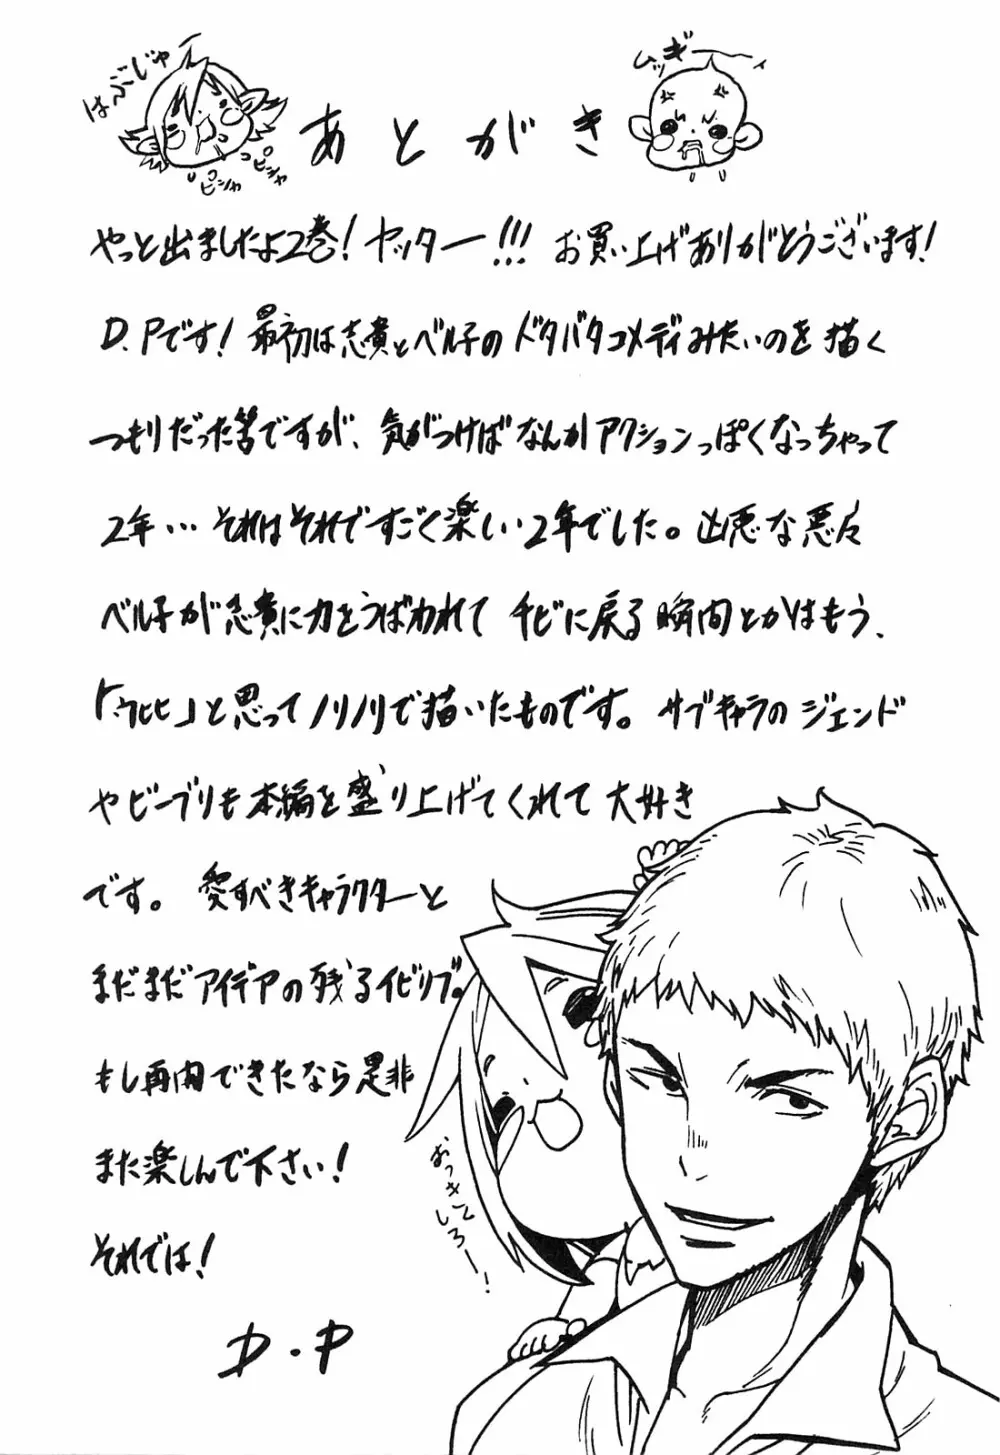 はぶじゃー
ピシャ
ピシャ
ムッギーィ
あとがき
やっと出ましたよ2巻!ヤッター!!!お買い上げありがとうございます!
D.Pです!最初は志貴とベル子のドタバタコメディみたいのを描く
つもりだった筈ですが、気がつけばなんかアクションっぽくなっちゃって
2年…それはそれですごく楽しい2年でした。凶悪な悪々
ベル子が志貴に力をうばわれてチビに戻る瞬間とかはもう、
「ウヒヒ」と思ってノリノリで描いたものです。サブキャラのジェンド
やビーブリも本編を盛り上げてくれて大好き
です。愛すべきキャラクターと
まだまだアイデアの残るイビリブ。
もし再開できたなら是非
また楽しんで下さい!
それでは!
D.P
おっきくしろー!